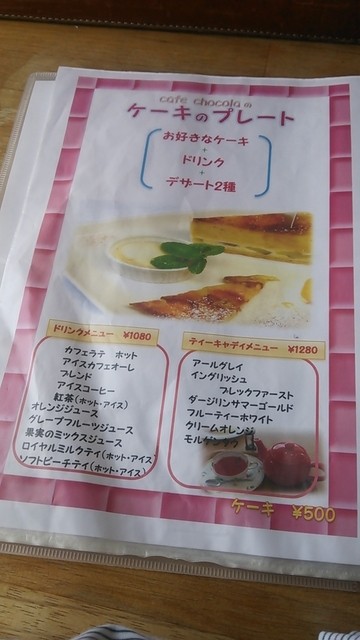 cafe chocolaの
ケーキのプレート
お好きなケーキ
+
ドリンク
+
デザート2種
ドリンクメニュー ¥1080
カフェラテ ホット
アイスカフェオーレ
ブレンド
アイスコーヒー
紅茶(ホット・アイス)
オレンジジュース
グレープフルーツジュース
果実のミックスジュース
ロイヤルミルクティ(ホット・アイス)
ソフトピーチティ(ホット・アイス)
ティーキャディメニュー ¥1280
アールグレイ
イングリッシュ
ブレックファースト
ダージリンサマーゴールド
フルーティーホワイト
クリームオレンジ
ケーキ ¥500